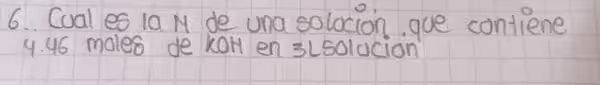 6.. Cual es la N de una solación, que contiene
4.46 moles de KOH en 3LSolucion